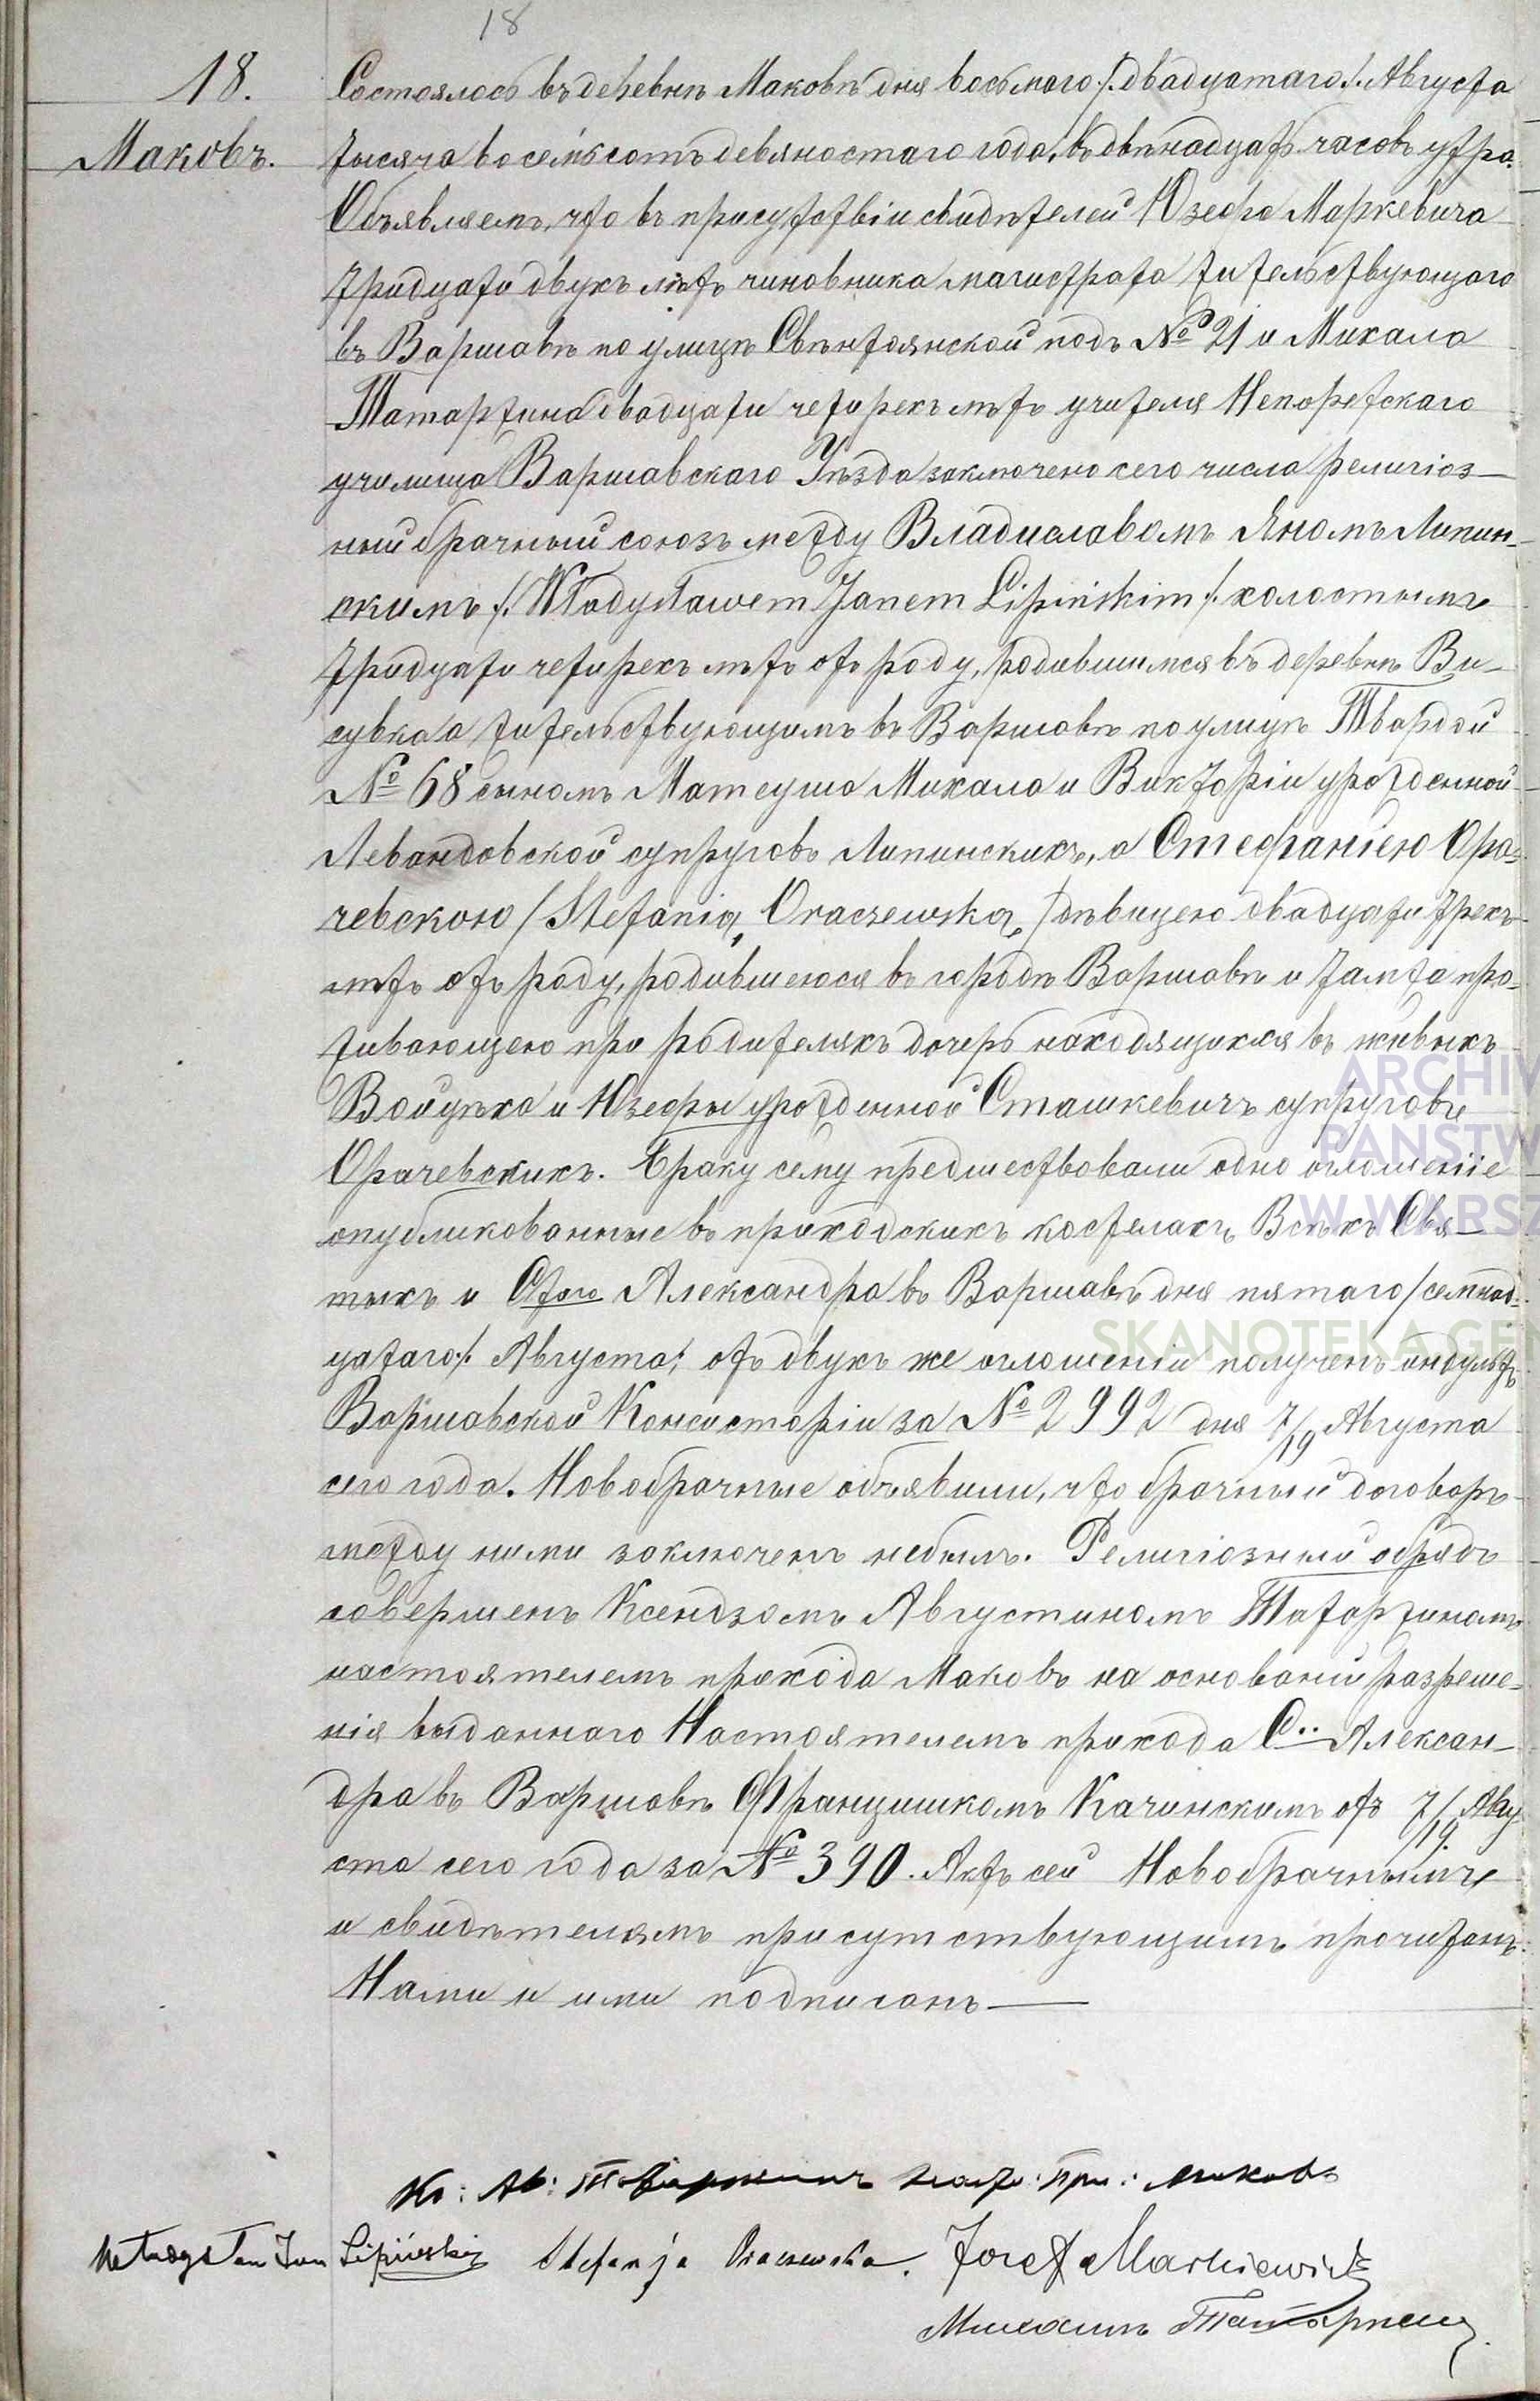 18
18.
Маковъ.
Состоялось въ деревнѣ Маковѣ дня восьмаго /:двадцатаго:/ Августа
тысяча восемьсотъ девяностаго года, въ двѣнадцать часовъ утра.
Объявляемъ, что въ присутствіи свидѣтелей Юзефа Маркевича
тридцати двухъ лѣтъ чиновника магистрата жительствующаго
въ Варшавѣ по улицѣ Свѣнтоянской подъ № 21 и Михала
Татаржина двадцати четирехъ лѣтъ учителя Непоретскаго
училища Варшавскаго Уѣзда заключено сего числа религіоз-
ный брачный союзъ между Владиславомъ Яномъ Липин-
скимъ /:Władysławem Janem Lipińskim/: холостымъ
тридцати четирехъ лѣтъ отъ роду, родившимся въ деревнѣ Ви-
сувка а жительствующимъ въ Варшавѣ по улицѣ Твардой
№ 68 сыномъ Матеуша Михала и Викторіи урожденной
Левандовской супруговъ Липинскихъ, а Стефаніею Ора-
чевскою /Stefanią Oraczewską/ дѣвицею двадцати трехъ
лѣтъ отъ роду, родившеюся въ городѣ Варшавѣ и тамже про-
живающею при родителяхъ дочерь находящихся въ живыхъ
Войцѣха и Юзефы урожденной Сташкевичъ супруговъ
Орачевскихъ. Браку сему предшествовали одно оглошеніе
опубликованные въ приходскихъ костелахъ Всѣхъ Свя-
тыхъ и Стаго Александра въ Варшавѣ дня пятаго /семнад-
цатаго:/ Августа; отъ двухъ же оглошеніи полученъ индультъ
Варшавской Консисторіи за № 2992 дня 7/19 Августа
сего года. Новобрачные объявили, что брачный договоръ
между ними заключенъ небылъ. Религіозный обрядъ
совершенъ Ксендзомъ Августиномъ Татаржиномъ
настоятелемъ прихода Маковъ на основаніи разреше-
нія выданнаго Настоятелемъ прихода С.. Алексан-
дра въ Варшавѣ Францишкомъ Качинскимъ отъ 7/19. Авгу
ста сего года за № 390. Актъ сей Новобрачнымъ
и свидѣтелямъ присутствующимъ прочитанъ
Нами и ими подписанъ
Кс: Ав: Татаржинъ наст: при: Маковъ
Władysław Jan Lipiński Stefanja Oraczewska. Józef Markiewicz
Михаилъ Татаржин
ARCHIW
PAŃSTW
W WARSZ
SKANOTEKA.GE